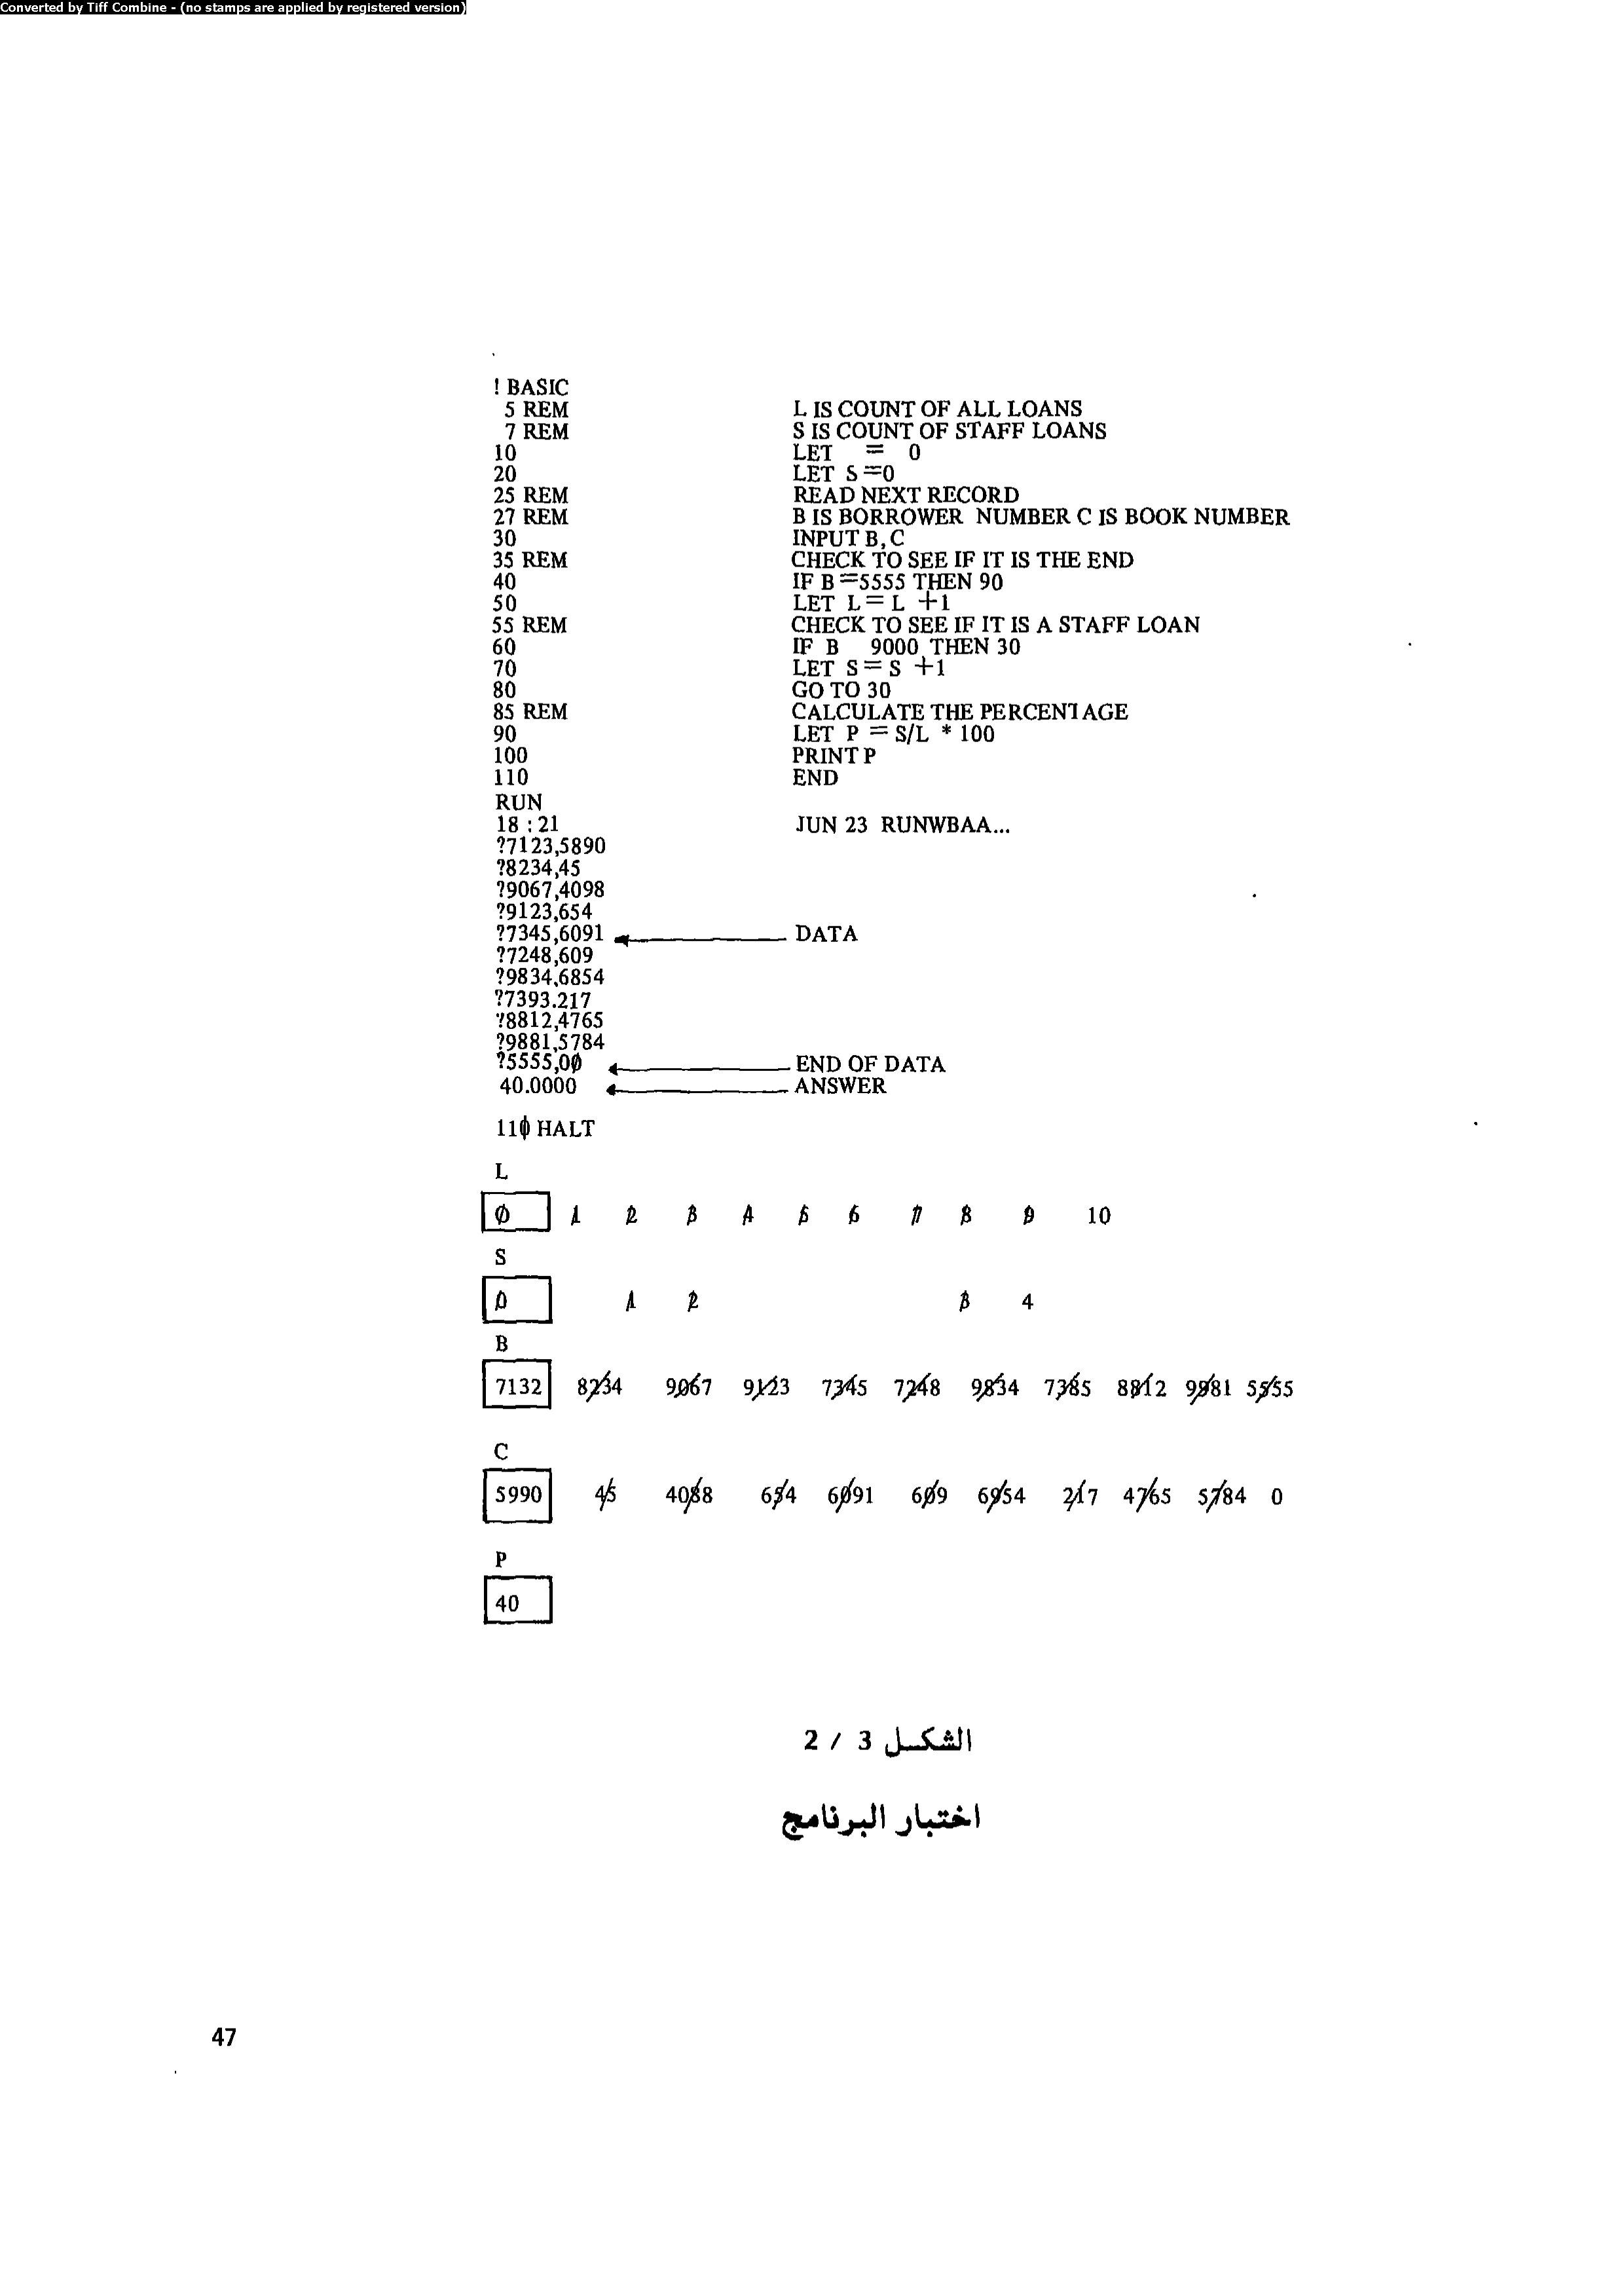 Converted by Tiff Combine - (no stamps are applied by registered version)
! BASIC
5 REM L IS COUNT OF ALL LOANS
7 REM S IS COUNT OF STAFF LOANS
10 LET = 0
20 LET S =0
25 REM READ NEXT RECORD
27 REM B IS BORROWER NUMBER C IS BOOK NUMBER
30 INPUT B, C
35 REM CHECK TO SEE IF IT IS THE END
40 IF B =5555 THEN 90
50 LET L = L +1
55 REM CHECK TO SEE IF IT IS A STAFF LOAN
60 IF B 9000 THEN 30
70 LET S = S +1
80 GO TO 30
85 REM CALCULATE THE PERCENTAGE
90 LET P = S/L * 100
100 PRINT P
110 END
RUN
18 : 21 JUN 23 RUNWBAA...
?7123,5890
?8234,45
?9067,4098
?9123,654
?7345,6091 DATA
?7248,609
?9834,6854
?7393.217
?8812,4765
?9881,5784
?5555,00 END OF DATA
40.0000 ANSWER
110 HALT
L
0 1 2 3 4 5 6 7 8 9 10
S
0 1 2 3 4
B
7132 8234 9067 9123 7345 7248 9834 7385 8812 9981 5555
C
5990 45 4088 654 6091 609 6954 217 4765 5784 0
P
40
الشكل 3 / 2
اختبار البرنامج
47